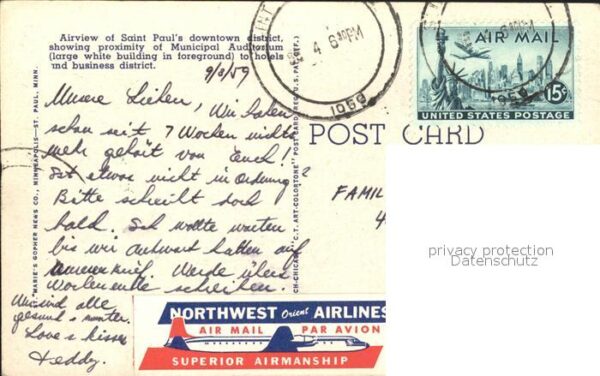 Airview of Saint Paul's downtown district,
showing proximity of Municipal Auditorium
(large white building in foreground) to hotels
and business district.
9/3/59
Unsere Lieben, Wir haben
schon seit 7 Wochen nichts
mehr gehört von Euch!
Ist etwas nicht in Ordnung?
Bitte schreibt doch
bald. Ich wollte warten
bis wir Antwort hatten auf
unseren Brief. Werde übers
Wochenende schreiben.
Wir sind alle
gesund & munter.
Love & kisses
Teddy.
"MARIE'S GOPHER NEWS CO., MINNEAPOLIS—ST. PAUL, MINN.
CH-CHICAGO "C.T. ART-COLORTONE" POST CARD (REG. U.S. PAT. OFF.)
POST CARD
SAINT
4 630PM
1959
1959
AIR MAIL
15¢
UNITED STATES POSTAGE
FAMIL
4
privacy protection
Datenschutz
NORTHWEST Orient AIRLINES
AIR MAIL PAR AVION
SUPERIOR AIRMANSHIP